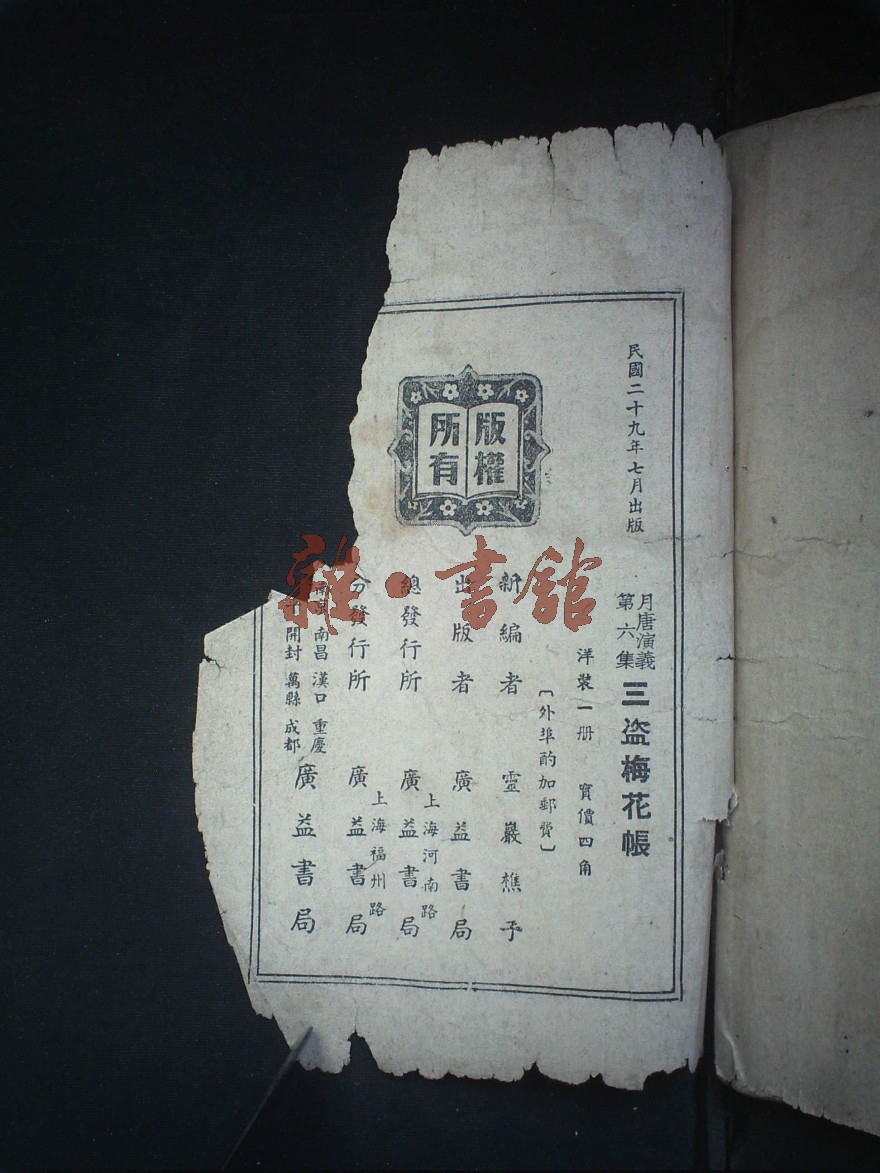 民國二十九年七月出版
月唐演義
第六集
三盗梅花帳
洋裝一册 實價四角
〔外埠酌加郵費〕
版權
所有
新編者 靈巖樵子
出版者 廣益書局
上海河南路
總發行所 廣益書局
上海福州路
分發行所 廣益書局
南京 南昌 漢口 重慶
開封 萬縣 成都
廣益書局
雜·書館